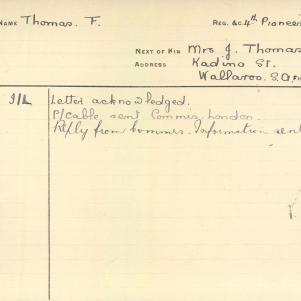 NAME Thomas. F. REG. &C. 4th Pioneer
NEXT OF KIN Mrs J. Thomas
ADDRESS Kadina St.
Wallaroo. S.A.
Letter acknowledged.
P/cable sent Commis. London.
Reply from Commis. Information sent